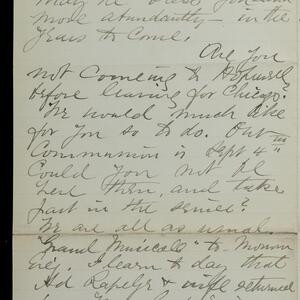 may he bless you
more abundantly - in the
years to come.
Are you
not Coming to Hopewell
before leaving for Chicago?
We would much like
for you so to do. Our
Communion is Sept 4
Could you not be
here then, and take
part in the service?
We are all as usual.
"Grand Musicale" to-morrow
eve'g. I learn to day that
& wife returned